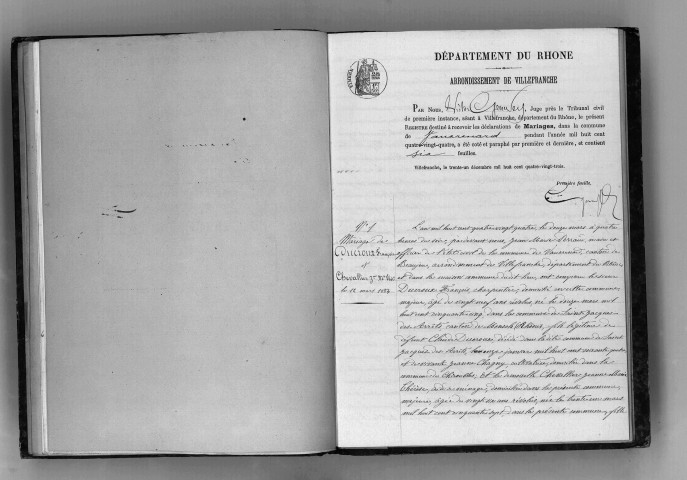 DÉPARTEMENT DU RHONE
ARRONDISSEMENT DE VILLEFRANCHE
PAR NOUS, Juge près le Tribunal civil
de première instance, séant à Villefranche, département du Rhône, le présent
REGISTRE destiné à recevoir les déclarations de Mariages, dans la commune
de Vauxrenard pendant l'année mil huit cent
quatre-vingt-quatre, a été coté et paraphé par première et dernière, et contient
six feuilles.
Villefranche, le trente-un décembre mil huit cent quatre-vingt-trois.
Première feuille,
N° 1
Mariage de
Ducroux François
et
Chevallier
le 12 mars 1884
L'an mil huit cent quatre vingt quatre le douze mars à quatre
heures du soir, pardevant nous, Jean Marie maire et
officier de l'état civil de la commune de Vauxrenard, canton de
Beaujeu, arrondissement de Villefranche, département du Rhône,
et dans la maison commune dudit lieu, ont comparu
Ducroux François, charpentier, domicilié en cette commune
majeur, âgé de vingt neuf ans révolus, né le douze mars mil
huit cent cinquante cinq dans la commune de Saint Jacques
des Arrêts canton de Monsols (Rhône), fils légitime de
défunt Claude Ducroux, décédé dans ladite commune de Saint
Jacques des Arrêts, janvier mil huit cent soixante quatre
et de vivante Jeanne cultivatrice, domiciliée dans la
commune de et demoiselle Chevallier Jeanne Marie
ménage, domiciliée dans la présente commune
majeure, âgée de vingt six ans révolus, née le mars
mil huit cent cinquante sept dans la présente commune, fille